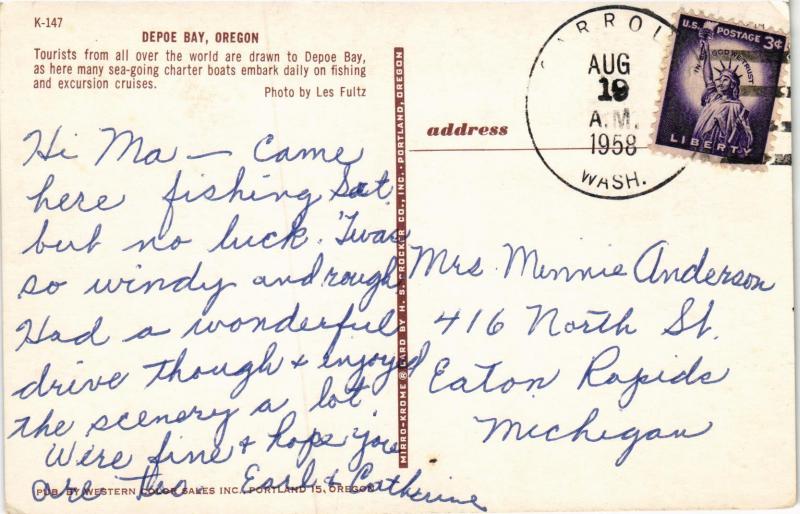 K-147
DEPOE BAY, OREGON
Tourists from all over the world are drawn to Depoe Bay,
as here many sea-going charter boats embark daily on fishing
and excursion cruises.
Photo by Les Fultz
Hi Ma — Came
here fishing Sat.
but no luck. 'Twas
so windy and rough
Had a wonderful
drive though & enjoyed
the scenery a lot
We're fine & hope you
are too - Earl & Catherine
PUB. BY WESTERN COLOR SALES INC., PORTLAND 15, OREGON
MIRRO-KROME ® CARD BY H. S. CROCKER CO., INC. · PORTLAND, OREGON
address
AUG
19
A.M.
1958
WASH.
U.S. POSTAGE 3¢
IN GOD WE TRUST
LIBERTY
Mrs. Minnie Anderson
416 North St.
Eaton Rapids
Michigan